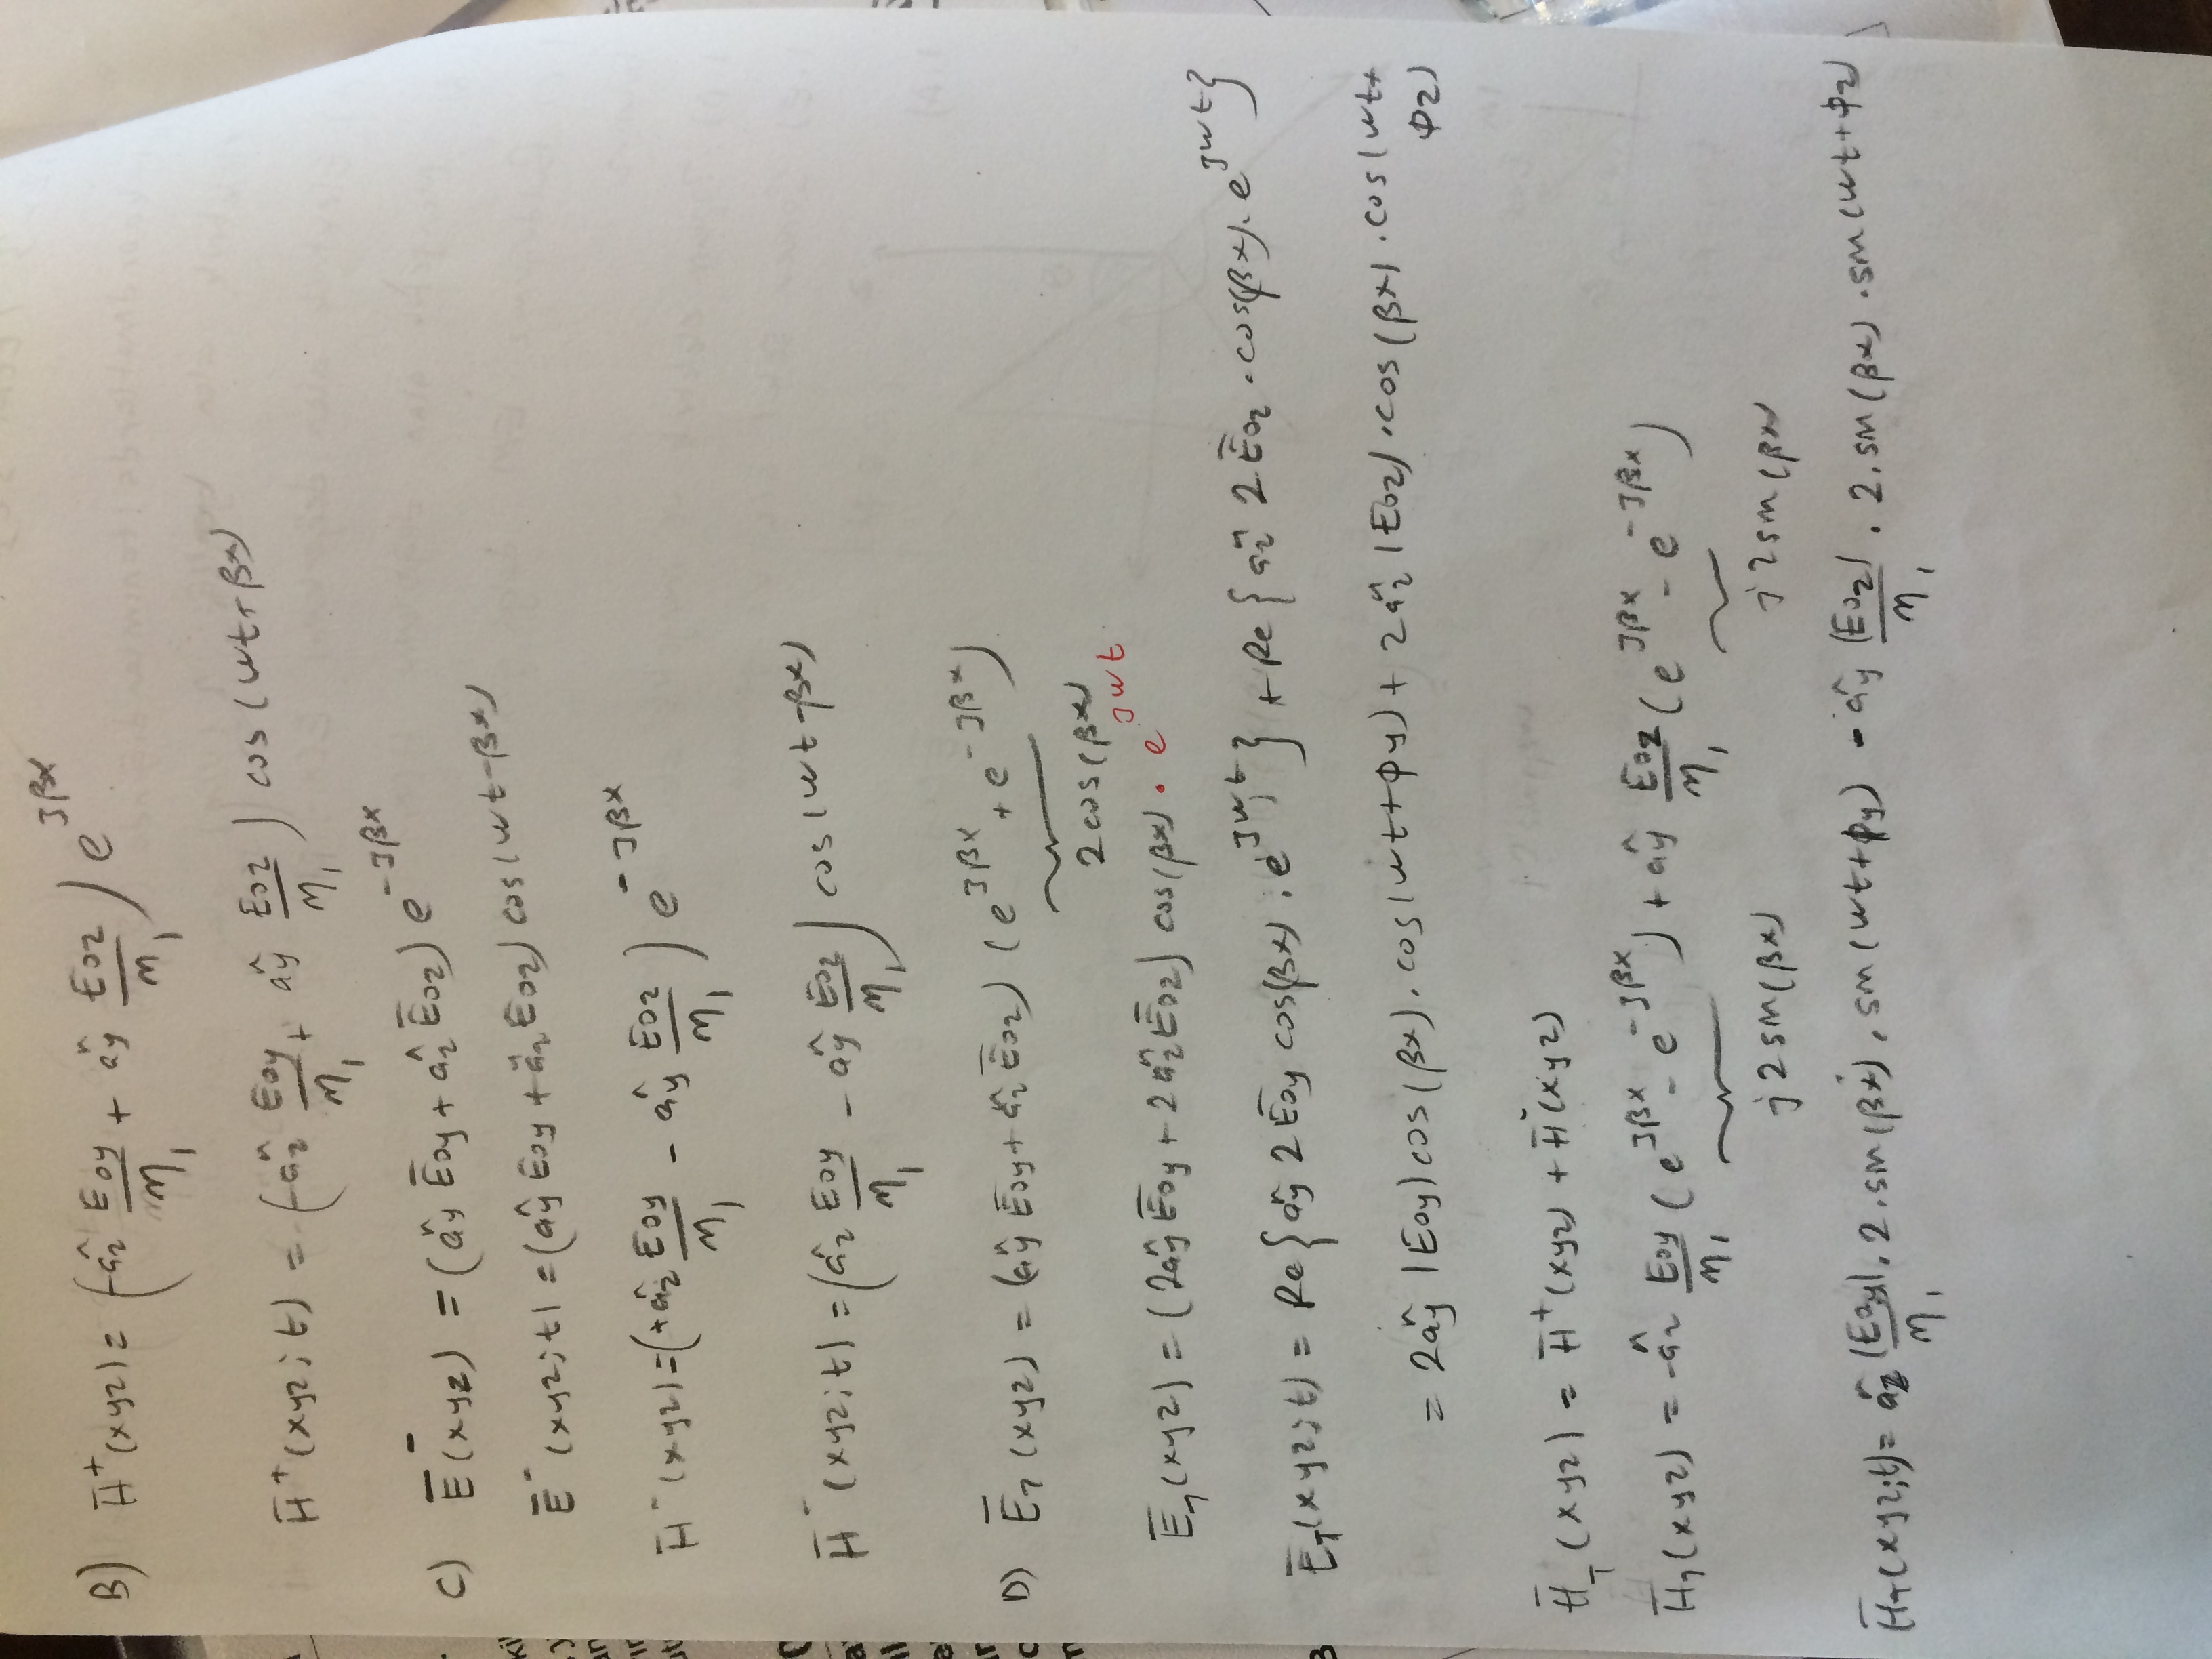 B) H̄⁺(xyz) = (-âz Eoy/η₁ + ây Eoz/η₁) e^{jβx}
H̄⁺(xyz;t) = (-âz Eoy/η₁ + ây Eoz/η₁) cos(wt+βx)
C) Ē⁻(xyz) = (ây Ēoy + âz Ēoz) e^{-jβx}
Ē⁻(xyz;t) = (ây Eoy + âz Eoz) cos(wt-βx)
H̄⁻(xyz) = (+âz Eoy/η₁ - ây Eoz/η₁) e^{-jβx}
H̄⁻(xyz;t) = (âz Eoy/η₁ - ây Eoz/η₁) cos(wt-βx)
D) ĒT(xyz) = (ây Ēoy + âz Ēoz) (e^{jβx} + e^{-jβx})
2cos(βx)
ĒT(xyz) = (2ây Ēoy + 2âz Ēoz) cos(βx) · e^{jwt}
ĒT(xyz;t) = Re{ây 2 Ēoy cos(βx) · e^{jwt}} + Re{âz 2 Ēoz · cos(βx) · e^{jwt}}
= 2ây |Eoy| cos(βx) · cos(wt+φy) + 2âz |Eoz| · cos(βx) · cos(wt+
φz)
H̄T(xyz) = H̄⁺(xyz) + H̄⁻(xyz)
H̄T(xyz) = -âz Eoy/η₁ (e^{jβx} - e^{-jβx}) + ây Eoz/η₁ (e^{jβx} - e^{-jβx})
j2sin(βx) j2sin(βx)
H̄T(xyz;t) = âz |Eoy|/η₁ · 2 · sin(βx) · sin(wt+φy) - ây |Eoz|/η₁ · 2 · sin(βx) · sin(wt+φz)